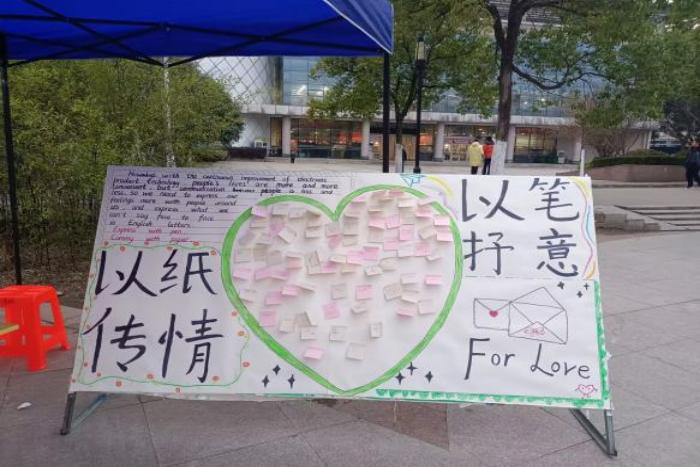 Nowadays with the continuous improvement of electronic
product technology people's lives are more and more
convenient but communication between people is less and
less, so we need to express our
feelings more with people around
us and express what we
can't say face to face
in English letters
Express with pen
Convey with paper
以纸
传情
以笔
抒意
For Love